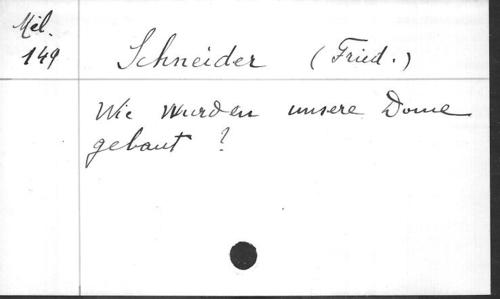 Mél.
149
Schneider (Fried.)
Wie wurden unsere Dome
gebaut ?